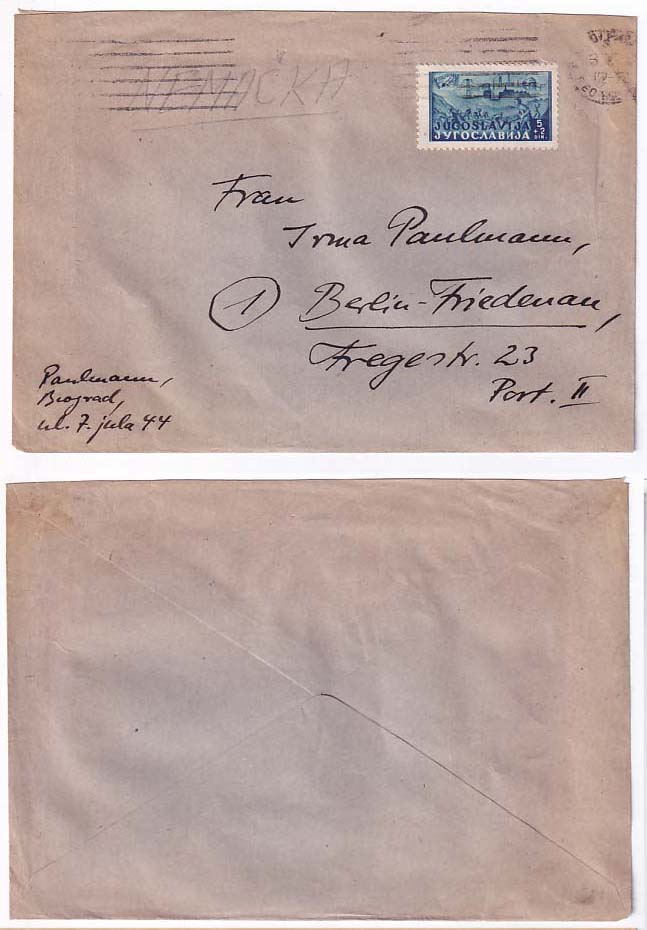 NEMAČKA
JUGOSLAVIJA
ЈУГОСЛАВИЈА
5
+2
DIN.
Frau
Irma Paulmann,
1 Berlin-Friedenau,
Fregestr. 23
Port. II
Paulmann,
Beograd,
ul. 7. jula 44